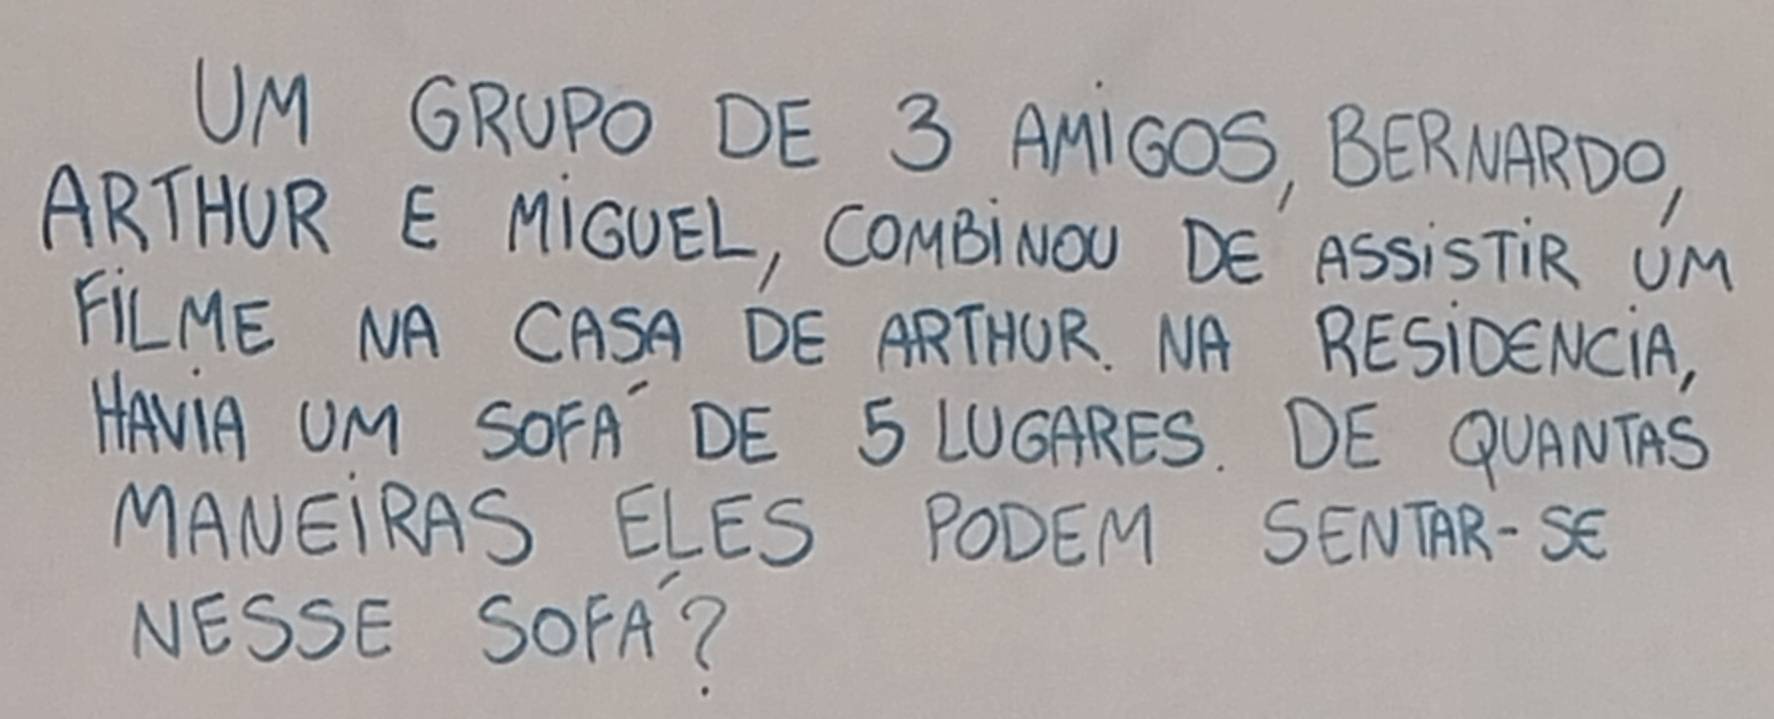 UM GRUPO DE 3 AMIGOS, BERNARDO,
ARTHUR E MIGUEL, COMBINOU DE ASSISTIR UM
FILME NA CASA DE ARTHUR. NA RESIDENCIA,
HAVIA UM SOFÁ DE 5 LUGARES. DE QUANTAS
MANEIRAS ELES PODEM SENTAR-SE
NESSE SOFÁ?